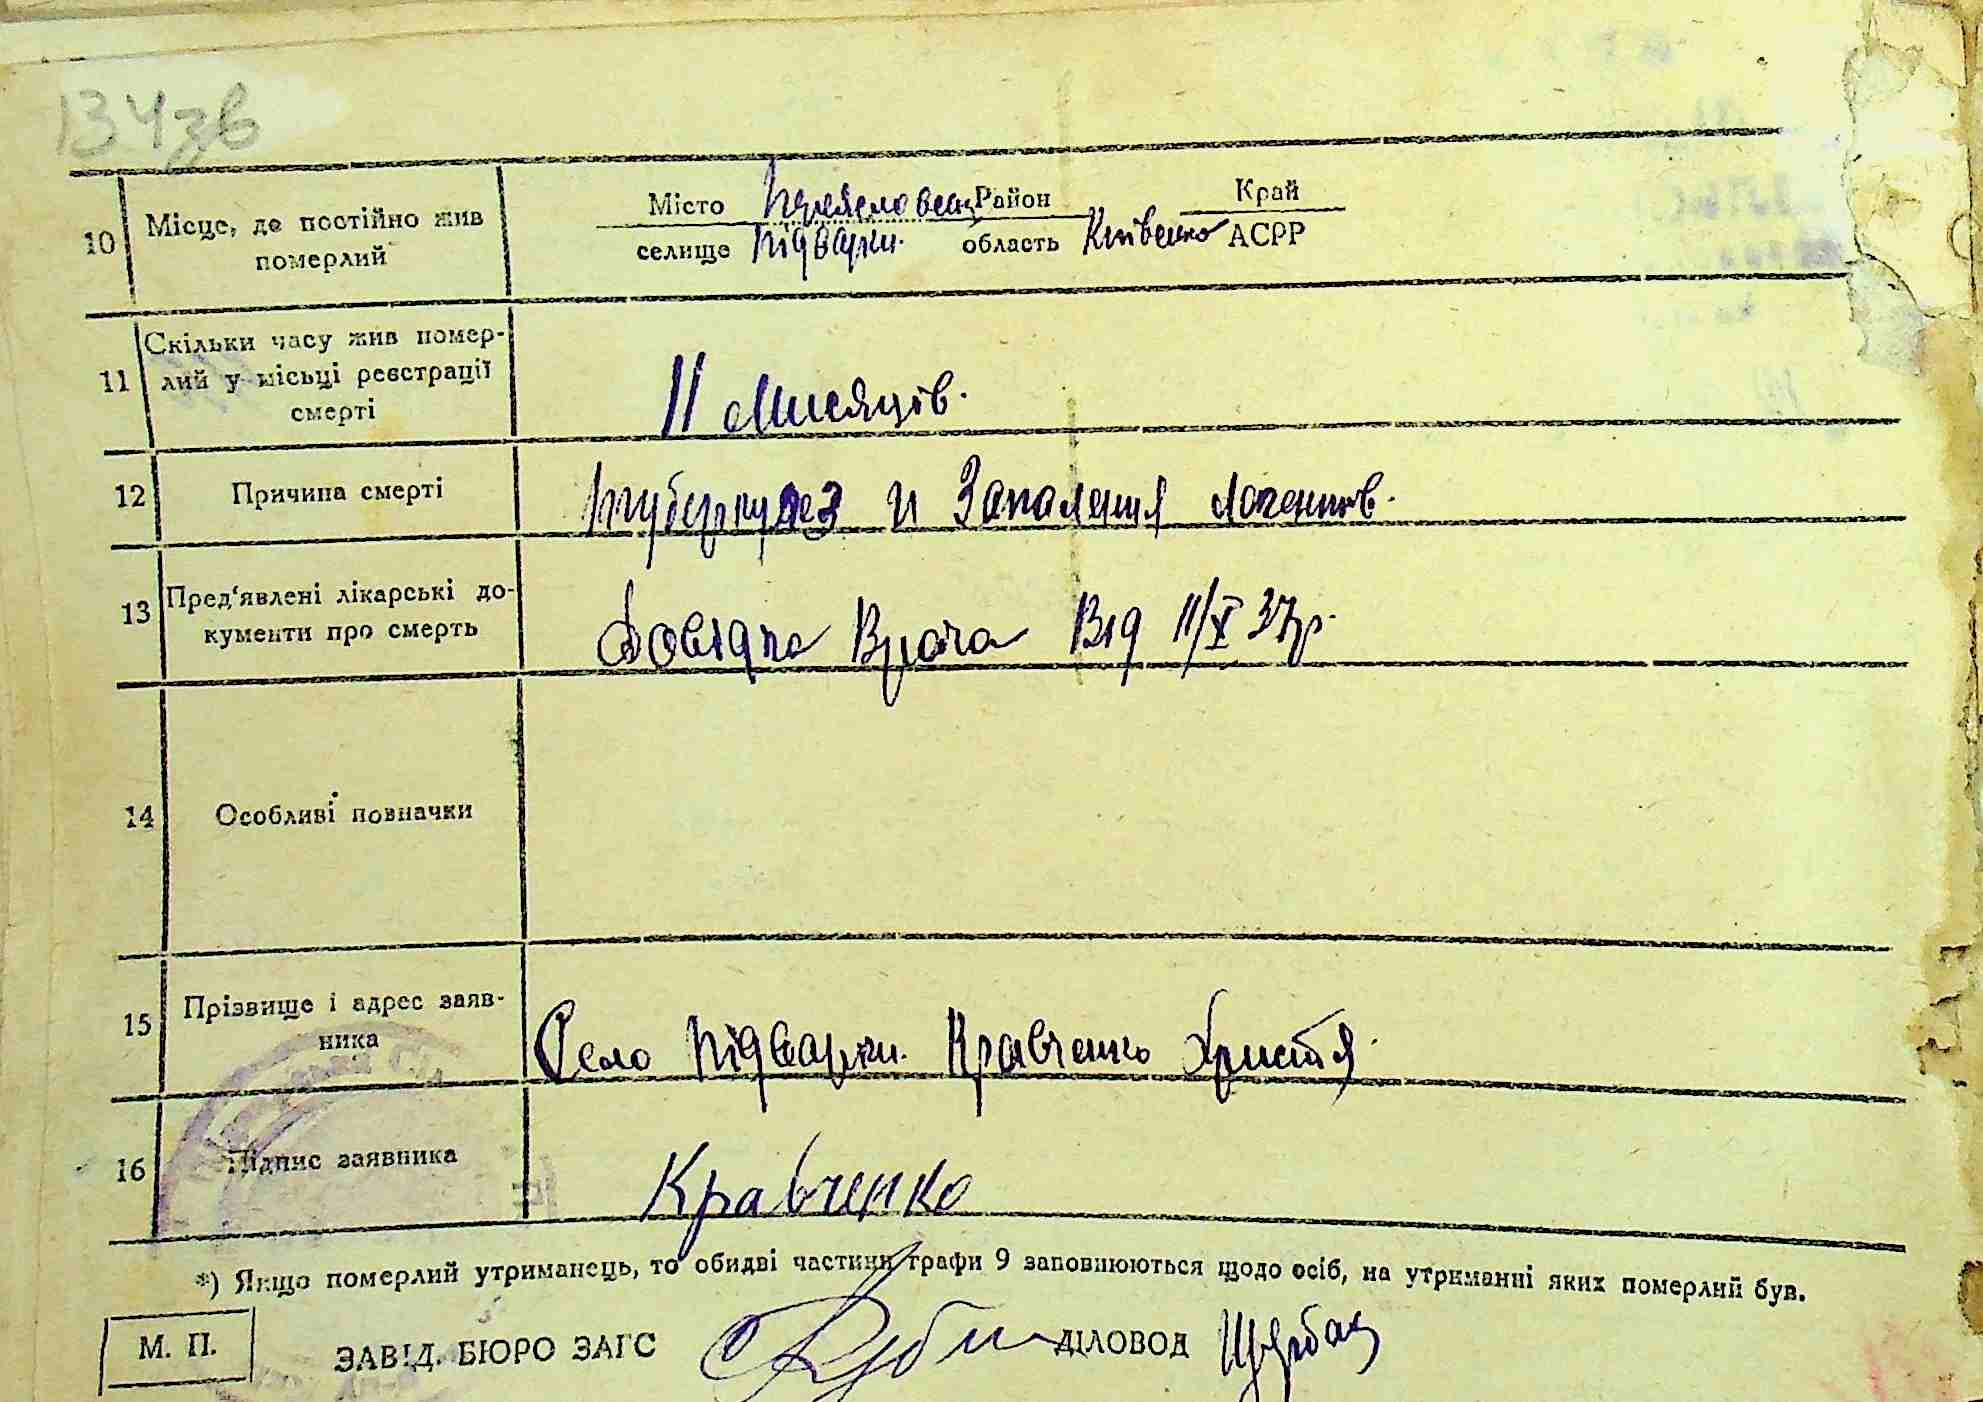 134зв
10 Місце, де постійно жив померлий
Місто Район Край
селище Підварки. область АСРР
11 Скільки часу жив помер-
лий у місьці реєстрації
смерті
11 Мисяців.
12 Причина смерті
Туберкулез и Запаления
13 Пред'явлені лікарські до-
кументи про смерть
Довідка Врача Від 11/X 37р.
14 Особливі позначки
15 Прізвище і адрес заяв-
ника
Село Підварки. Кравченко Христя.
16 Підпис заявника
Кравченко
*) Якщо померлий утриманець, то обидві частини графи 9 заповнюються щодо осіб, на утриманні яких померлий був.
М. П.
ЗАВІД. БЮРО ЗАГС ДІЛОВОД Щербак